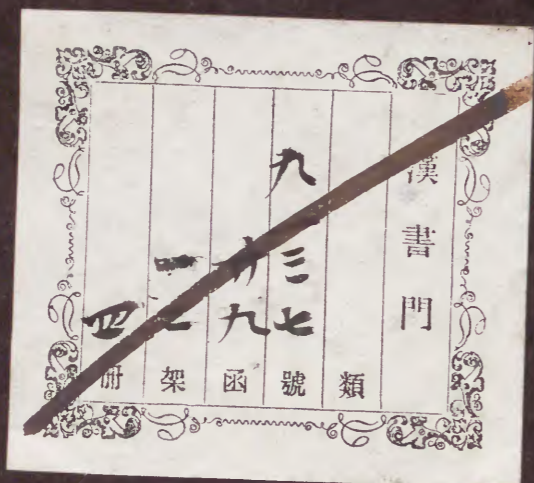 漢書門
類
九三七號
廿九函
一架
四冊